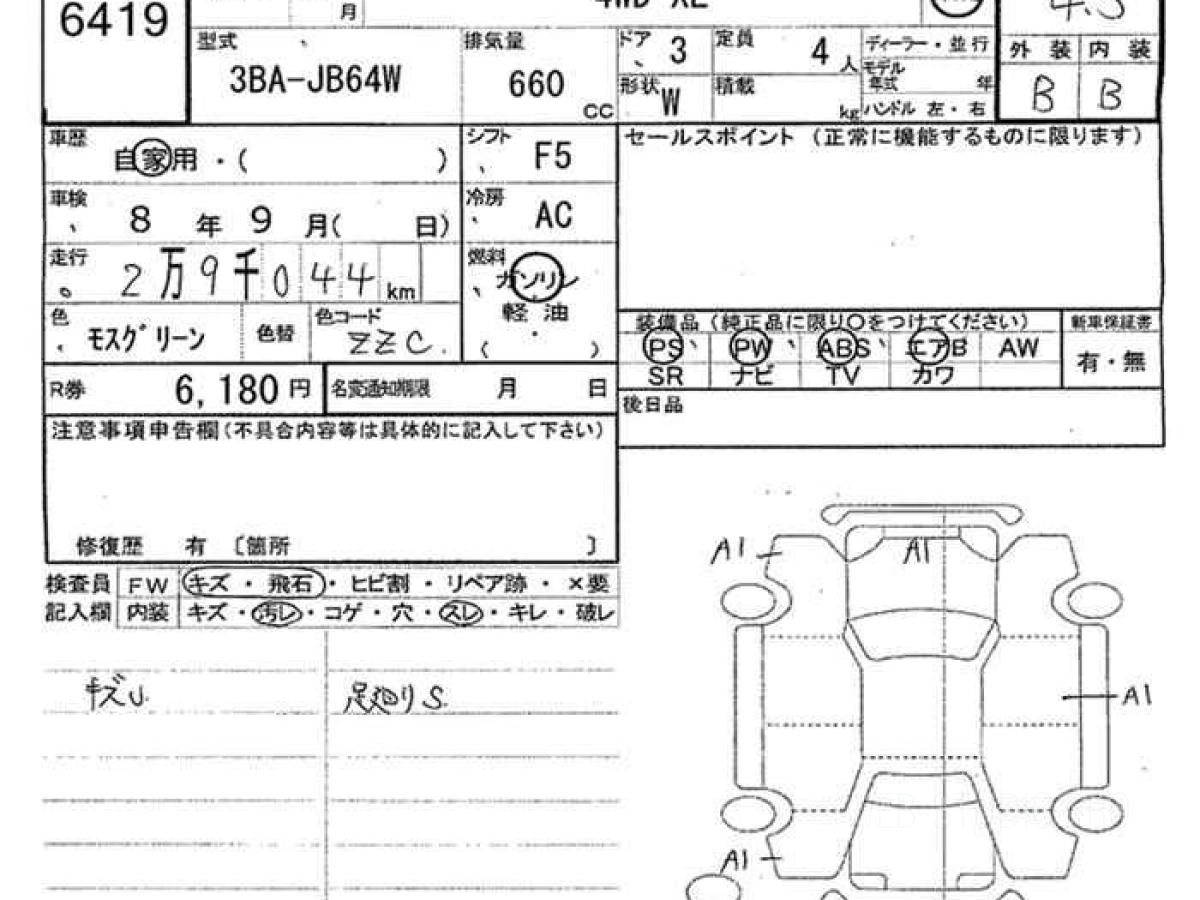 6419
月
4WD XL
4.5
型式
3BA-JB64W
排気量
660
CC
ドア 3
形状 W
定員 4 人
積載 kg
ディーラー・並行
モデル年式 年
ハンドル 左・右
外装 内装
B B
車歴
自家用・( )
シフト
F5
セールスポイント (正常に機能するものに限ります)
車検
8 年 9 月( 日)
冷房
AC
走行
2万9千044km
燃料
ガソリン
軽 油
( ・ )
色
モスグリーン
色替
色コード
ZZC.
装備品 (純正品に限り○をつけてください)
PS PW ABS エアB AW
SR ナビ TV カワ
新車保証書
有・無
R券 6,180 円
名変通知期限 月 日
後日品
注意事項申告欄(不具合内容等は具体的に記入して下さい)
修復歴 有 〔箇所 〕
検査員
記入欄
FW キズ・飛石・ヒビ割・リペア跡・×要
内装 キズ・汚レ・コゲ・穴・スレ・キレ・破レ
キズU.
足廻りS.
A1
A1
A1
A1